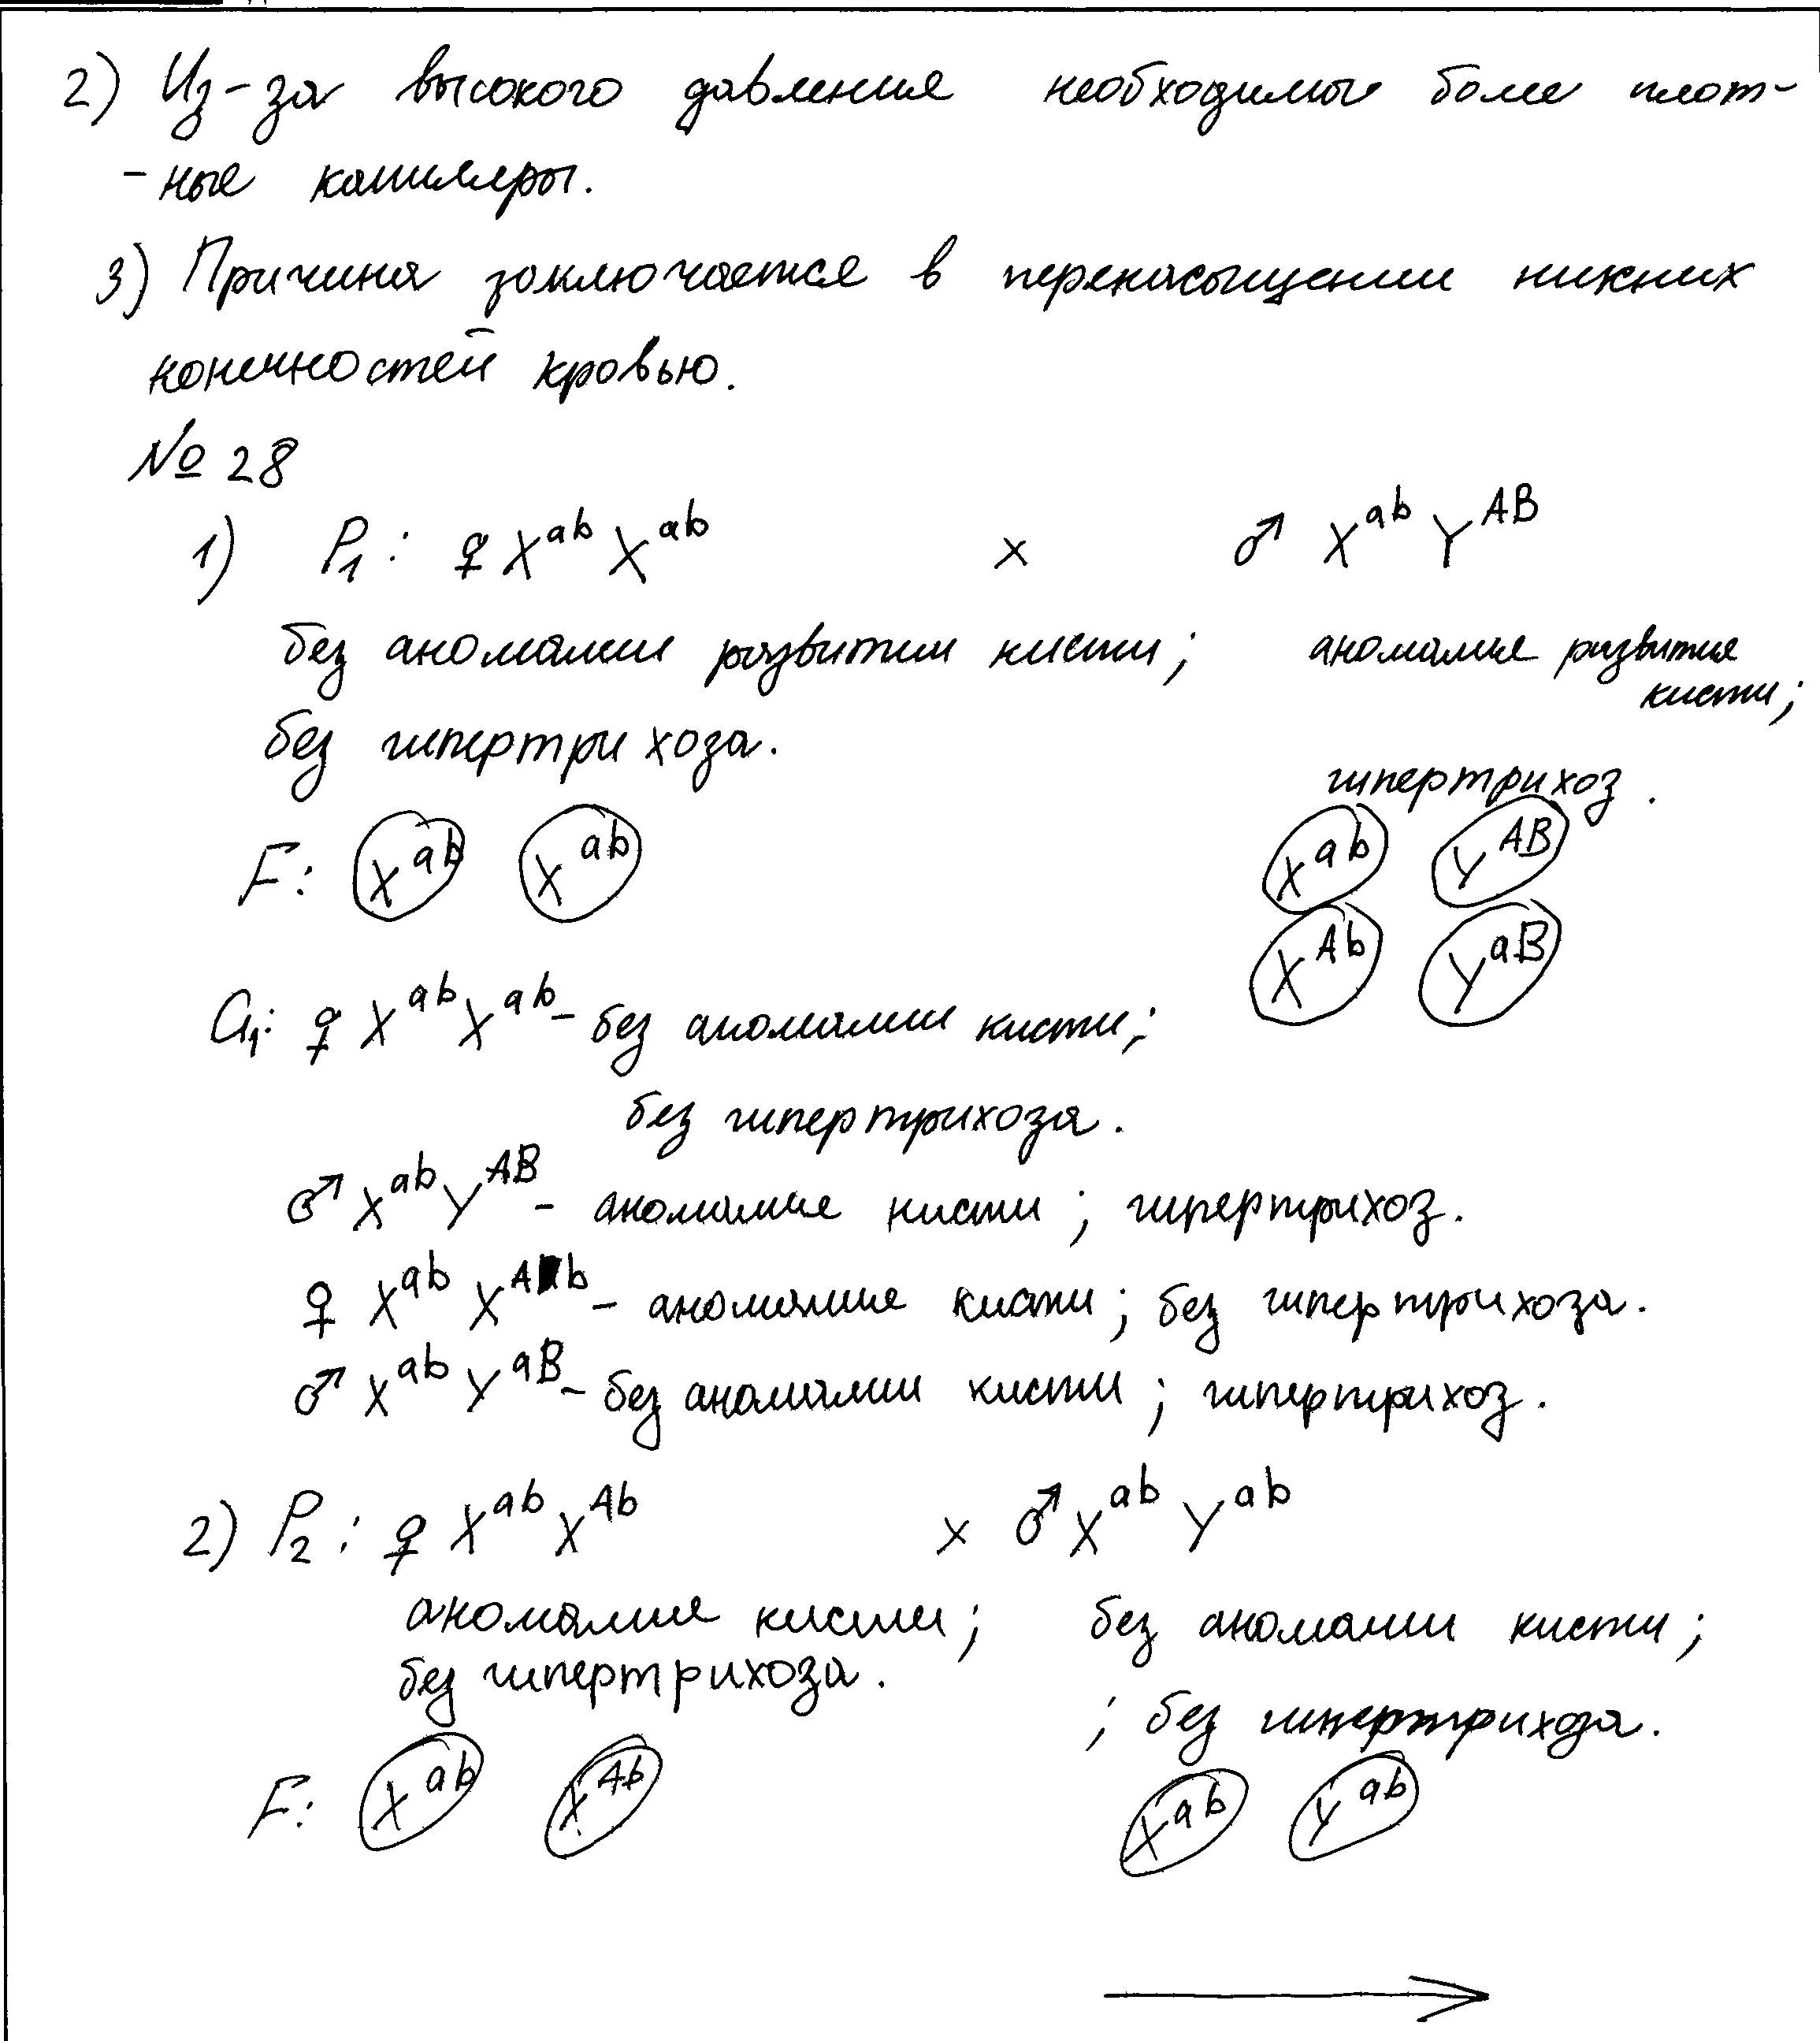 2) Из-за высокого давления необходимы более плот-
-ные капилляры.
3) Причина заключается в перенасыщении нижних
конечностей кровью.
№ 28
1) P₁: ♀ X^ab X^ab x ♂ X^ab Y^AB
без аномалии развитии кисти; аномалия развития
кисти;
без гипертрихоза.
гипертрихоз.
F: X^ab X^ab X^ab Y^AB
X^Ab Y^aB
G₁: ♀ X^ab X^ab - без аномалии кисти;
без гипертрихоза.
♂ X^ab Y^AB - аномалия кисти; гипертрихоз.
♀ X^ab X^Ab - аномалия кисти; без гипертрихоза.
♂ X^ab Y^aB - без аномалии кисти; гипертрихоз.
2) P₂: ♀ X^ab X^Ab x ♂ X^ab Y^ab
аномалия кисти; без аномалии кисти;
без гипертрихоза.
; без гипертрихоза.
F: X^ab X^Ab X^ab Y^ab